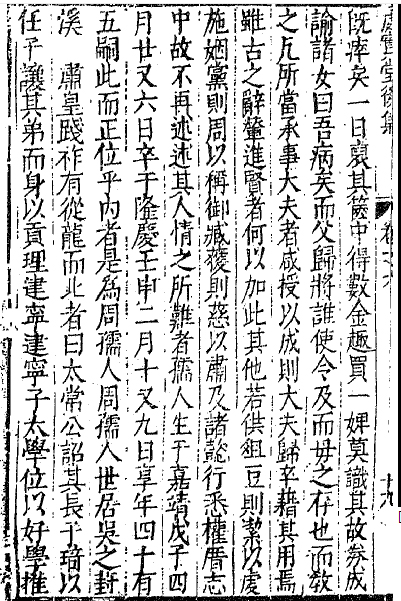 處實堂後集 卷六 十九
既瘁矣一日裒其篋中得數金趣買一婢莫識其故券成
諭諸女曰吾病矣而父歸將誰使令及而母之存也而教
之凡所當承事大夫者咸授以成則大夫歸卒藉其用焉
雖古之辭簪進賢者何以加此其他若供俎豆則絜以虔
施姻黨則周以稱御臧獲則慈以肅及諸懿行悉權厝志
中故不再述述其人情之所難者孺人生于嘉靖戊子四
月廿又六日卒于隆慶壬申二月十又九日享年四十有
五嗣此而正位乎內者是為周孺人周孺人世居吳之葑
溪 肅皇踐祚有從龍而北者曰太常公詔其長子琦以
任子讓其弟而身以貢理建寧建寧子太學位以好學推